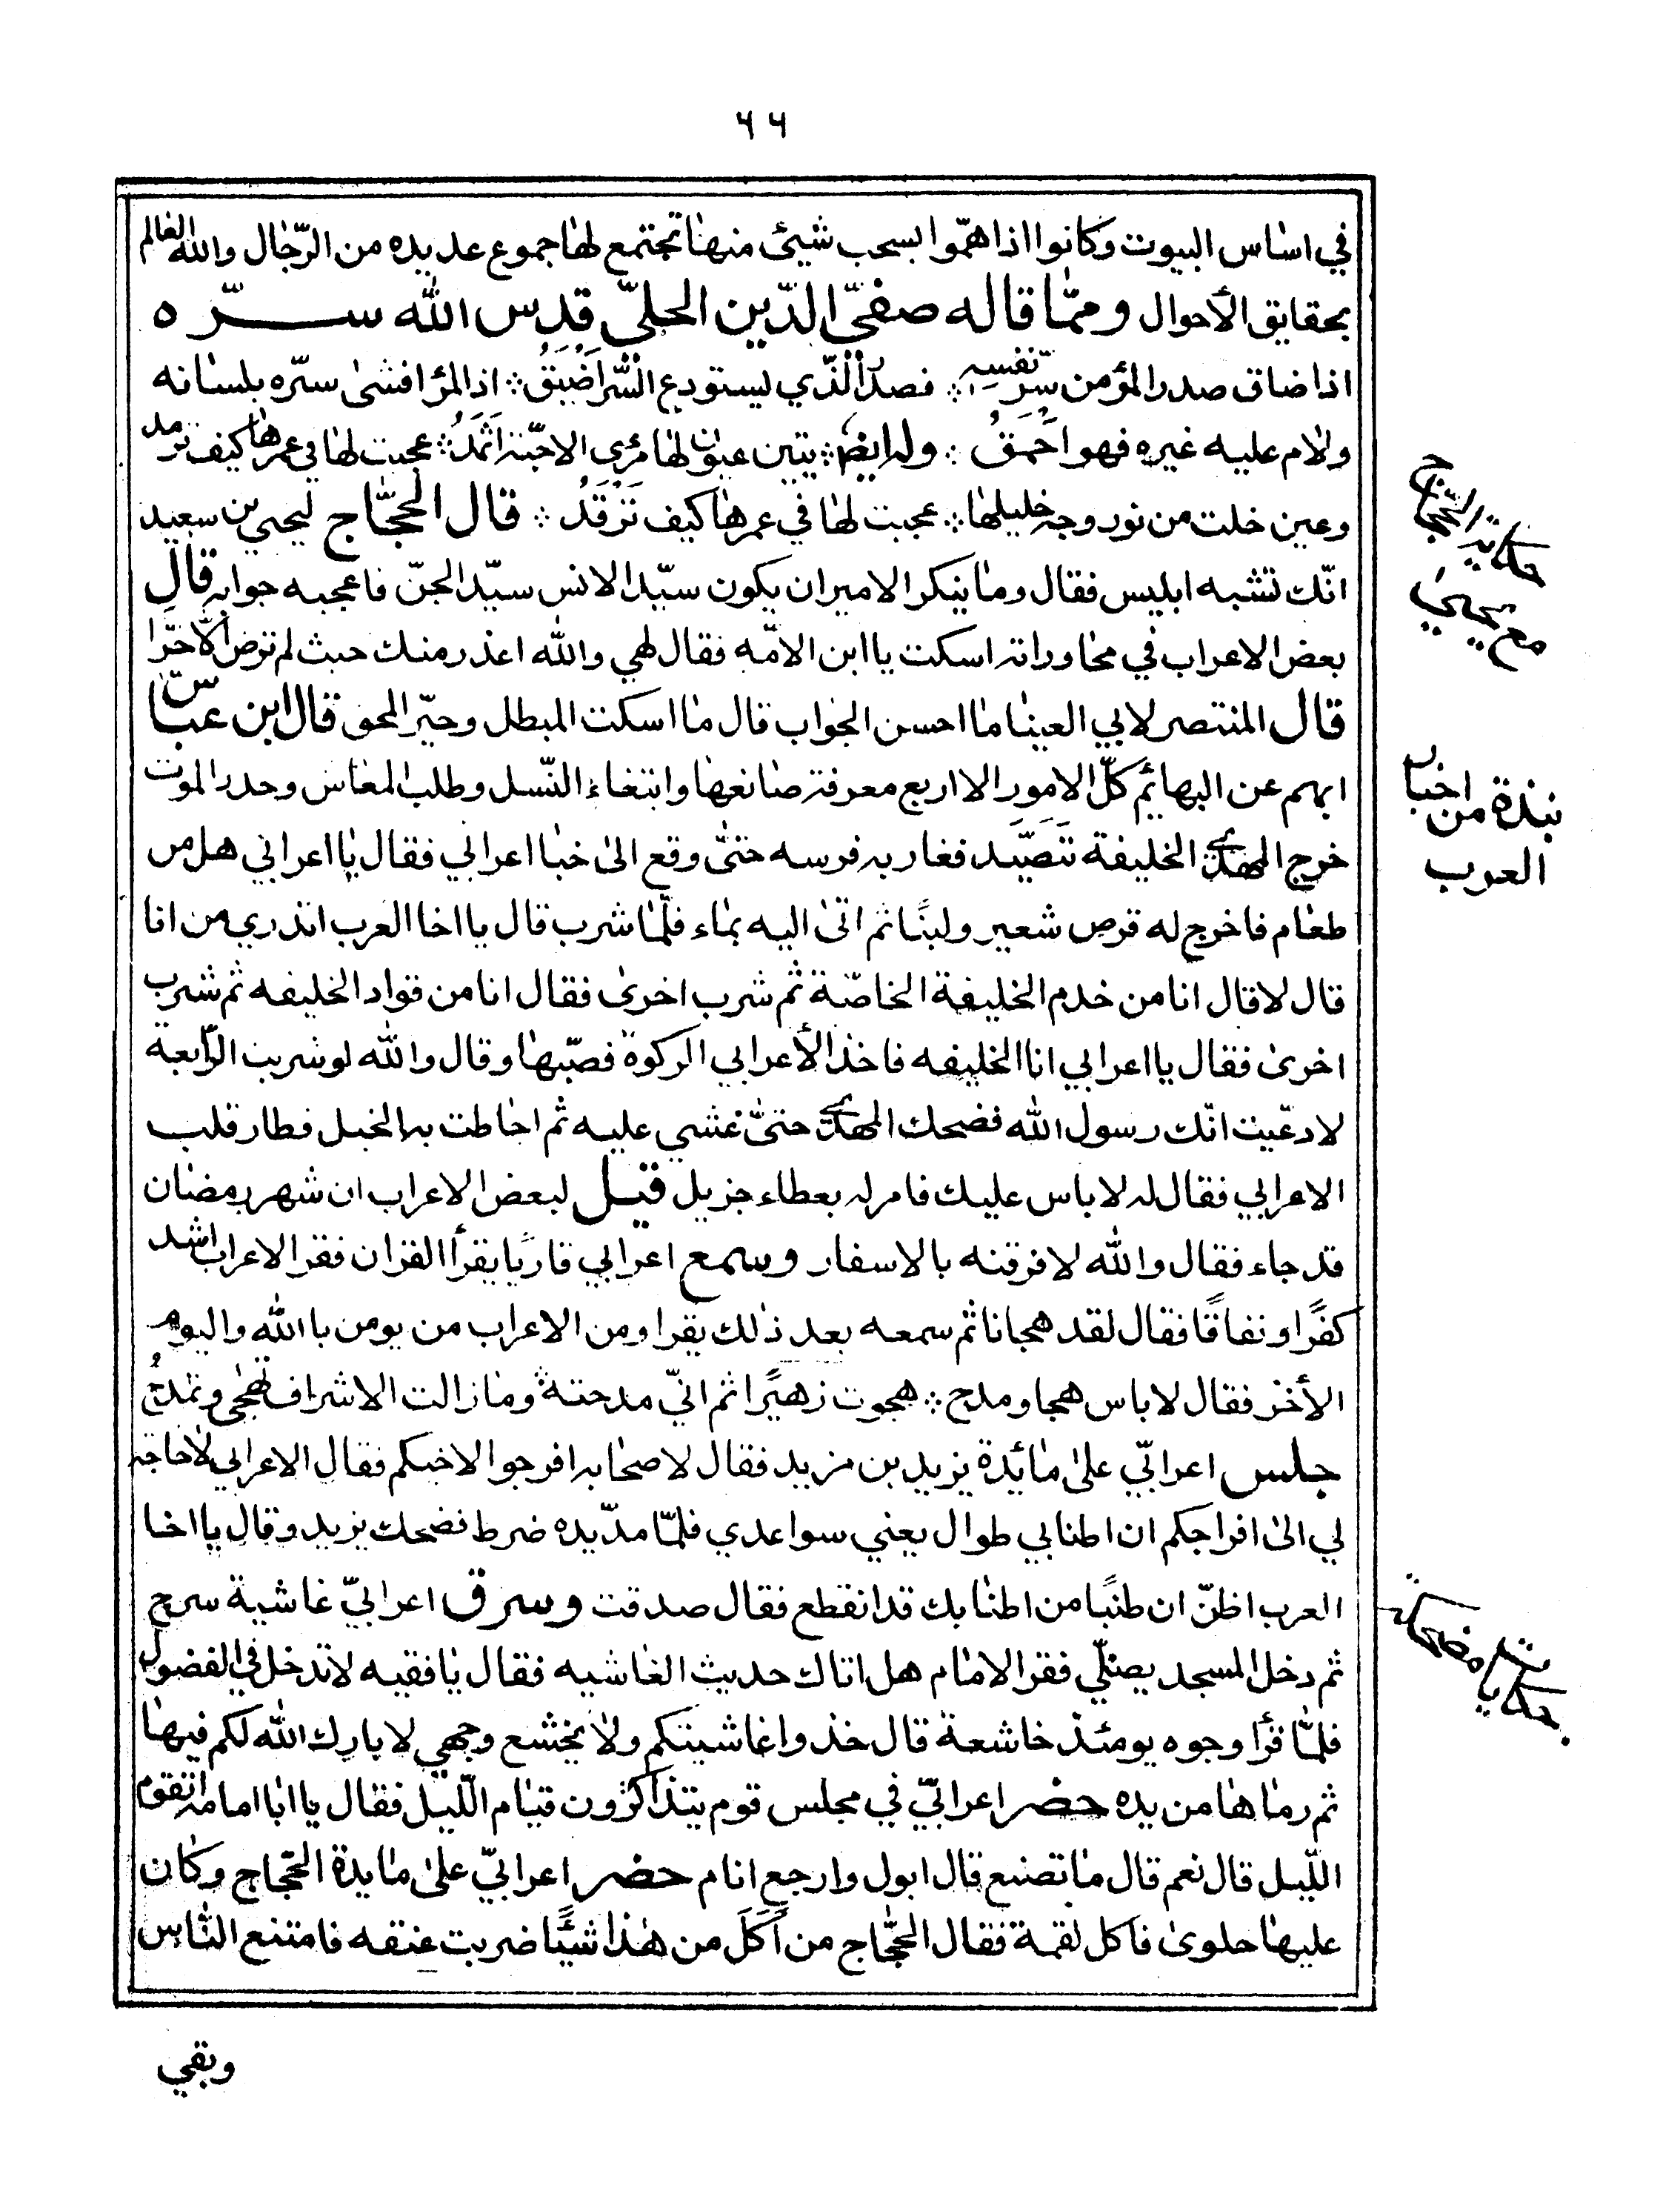 ٦٦
في اساس البيوت وكانوا اذا همّوا بسحب شيئ منها تجتمع لها جموع عديده من الرّجال والله العالم
بحقايق الأحوال وممّا قاله صفيّ الدّين الحليّ قدس الله سرّه
اذا ضاق صدر المؤمن سرّ نفسه ؞ فصدر الّذي يستودع السّر اضيق ؞ اذ المرؤ افشى سرّه بلسانه
ولام عليه غيره فهو احمق ؞ وله ايضا ؞ عيون لها مرئ الاحبّة اثمد ؞ عجبت لها في عمرها كيف ترمد
وعين خلت من نور وجه خليلها ؞ عجبت لها في عمرها كيف ترقد ؞ قال الحجّاج ليحيى بن سعيد
انّك تشبه ابليس فقال وما ينكر الامير ان يكون سيّد الانس سيّد الجنّ فاعجبه جوابه قال
بعض الاعراب في محاوراته اسكت يا ابن الامّه فقال لهي والله اعذر منك حيث لم ترض الّا حرّا
قال المنتصر لابي العينا ما احسن الجواب قال ما اسكت المبطل وحيّر المحق قال ابن عبّاس
ابهم عن البهائم كلّ الامور الا اربع معرفة صانعها وابتغاء النّسل وطلب المعاش وحدر الموت
خرج المهدي الخليفة تتصيّد فغار به فرسه حتىّ وقع الى خبا اعرابي فقال يا اعرابي هل من
طعام فاخرج له قرص شعير ولبنًا ثم اتى اليه بماء فلّما شرب قال يا اخا العرب اتدري من انا
قال لا قال انا من خدم الخليفة الخاصّة ثم شرب اخرى فقال انا من قواد الخليفه ثم شرب
اخرى فقال يا اعرابي انا الخليفه فاخذ الأعرابي الركوة فصبّها وقال والله لو شربت الرّابعة
لادعّيت انّك رسول الله فضحك المهدي حتىّ غشي عليه ثم احاطت به الخيل فطار قلب
الاعرابي فقال له لا باس عليك فامر له بعطاء جزيل قيل لبعض الاعراب ان شهر رمضان
قد جاء فقال والله لا فرقنه بالاسفار وسمع اعرابي قاريًا يقرأ القران فقر الاعراب اشد
كفرًا ونفاقًا فقال لقد هجانا ثم سمعه بعد ذلك يقرا ومن الاعراب من يومن با الله واليوم
الأخر فقال لا باس هجا ومدح ؞ هجوت زهيرًا ثم انيّ مدحته وما زالت الاشراف تهجى وتمدحُ
جلس اعرابيّ على مائدة يزيد بن مزيد فقال لاصحابه افرجوا لاخيكم فقال الاعرابي لا حاجة
لي الى افراجكم ان اطنابي طوال يعني سواعدي فلمّا مدّ يده ضرط فضحك يزيد وقال يا اخا
العرب اظنّ ان طنبًا من اطنابك قد انقطع فقال صدقت وسرق اعرابيّ غاشية سرج
ثم دخل المسجد يصلّي فقر الامام هل اتاك حديث الغاشيه فقال يا فقيه لا تدخل في الفضول
فلمّا قرأ وجوه يومئذ خاشعة قال خذوا غاشيتكم ولا يخشع وجهي لا بارك الله لكم فيها
ثم رماها من يده حضر اعرابيّ في مجلس قوم يتذاكرون قيام اللّيل فقال يا ابا امامه اتقوم
اللّيل قال نعم قال ما تصنع قال ابول وارجع انام حضر اعرابيّ على مايدة الحّجاج وكان
عليها حلوى فاكل لقمة فقال الحجّاج من أكل من هذا شيئًا ضربت عنقه فامتنع النّاس
وبقي
حكاية الحجّاج
مع يحيى
نبذة من اخبار
العرب
حكايات مضحكة